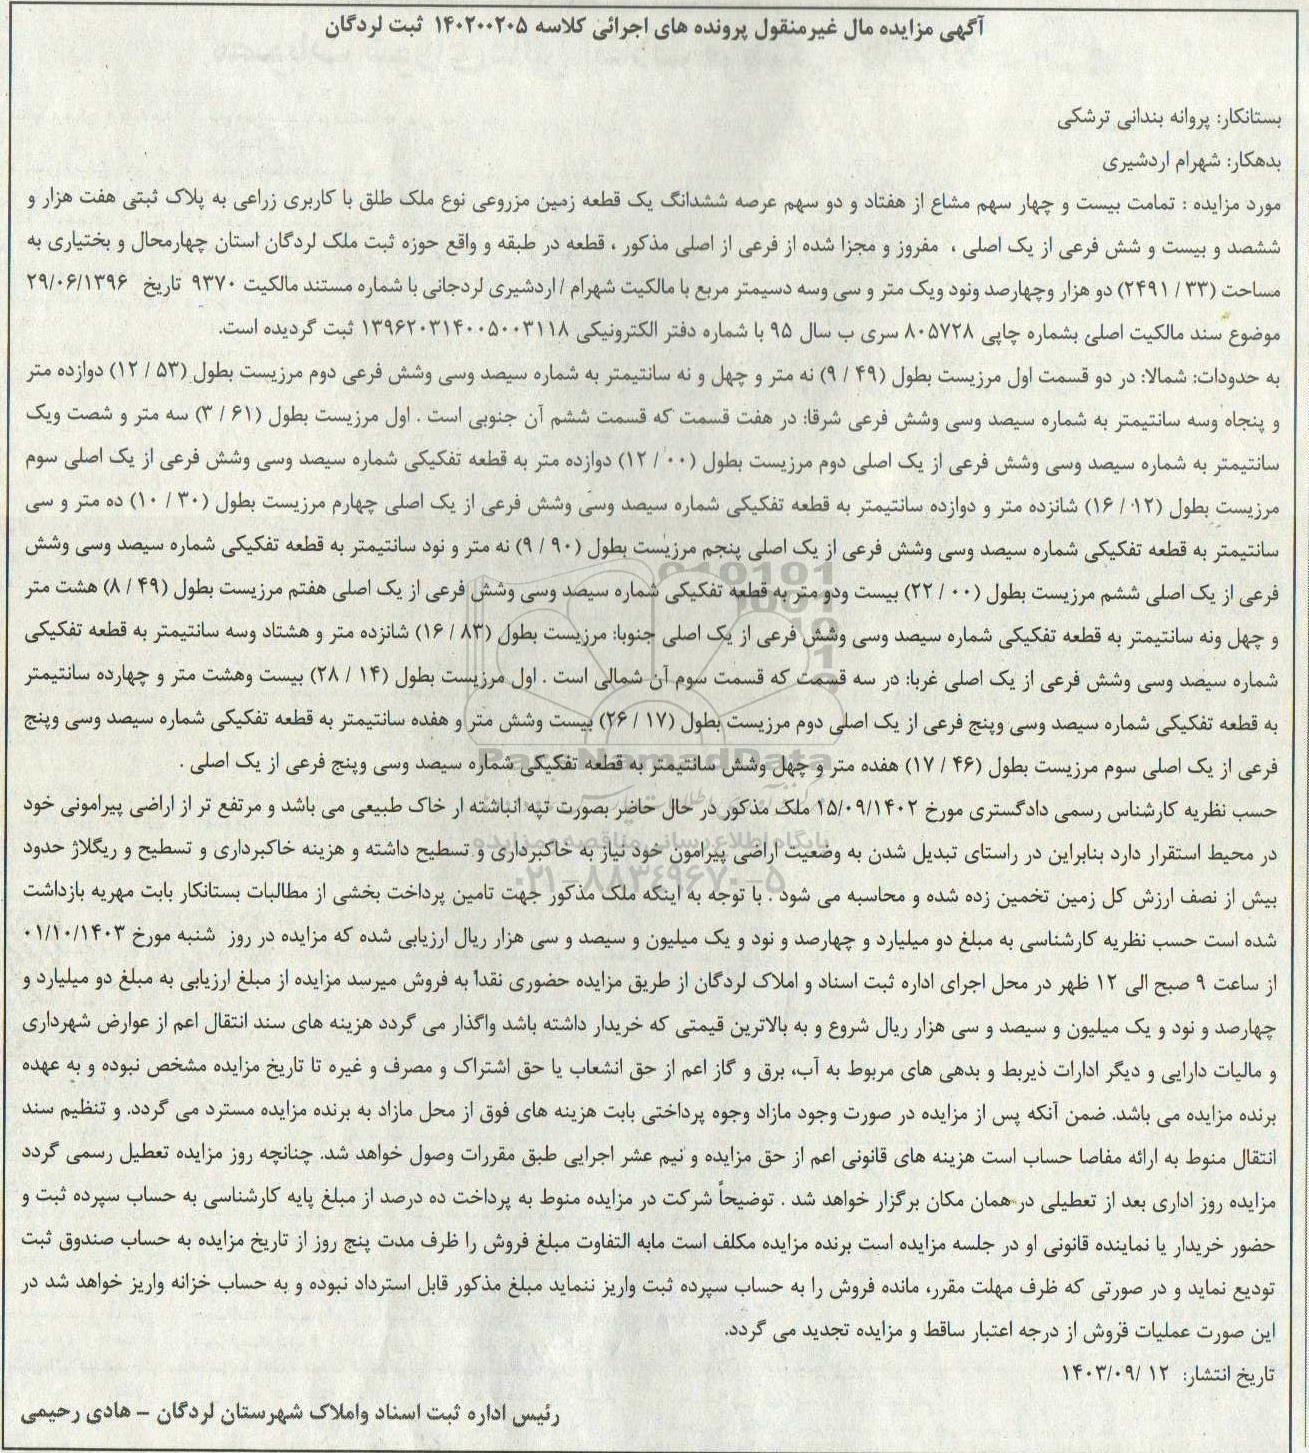 آگهی مزایده مال غیرمنقول پرونده های اجرائی کلاسه ۱۴۰۲۰۰۲۰۵ ثبت لردگان
بستانکار: پروانه بندانی ترشکی
بدهکار: شهرام اردشیری
مورد مزایده : تمامت بیست و چهار سهم مشاع از هفتاد و دو سهم عرصه ششدانگ یک قطعه زمین مزروعی نوع ملک طلق با کاربری زراعی به پلاک ثبتی هفت هزار و
ششصد و بیست و شش فرعی از یک اصلی ، مفروز و مجزا شده از فرعی از اصلی مذکور ، قطعه در طبقه و واقع حوزه ثبت ملک لردگان استان چهارمحال و بختیاری به
مساحت (۳۳ / ۲۴۹۱) دو هزار وچهارصد ونود ویک متر و سی وسه دسیمتر مربع با مالکیت شهرام / اردشیری لردجانی با شماره مستند مالکیت ۹۳۷۰ تاریخ ۲۹/۰۶/۱۳۹۶
موضوع سند مالکیت اصلی بشماره چاپی ۸۰۵۷۲۸ سری ب سال ۹۵ با شماره دفتر الکترونیکی ۱۳۹۶۲۰۳۱۴۰۰۵۰۰۳۱۱۸ ثبت گردیده است.
به حدودات: شمالا: در دو قسمت اول مرزیست بطول (۴۹ / ۹) نه متر و چهل و نه سانتیمتر به شماره سیصد وسی وشش فرعی دوم مرزیست بطول (۵۳ / ۱۲) دوازده متر
و پنجاه وسه سانتیمتر به شماره سیصد وسی وشش فرعی شرقا: در هفت قسمت که قسمت ششم آن جنوبی است . اول مرزیست بطول (۶۱ / ۳) سه متر و شصت ویک
سانتیمتر به شماره سیصد وسی وشش فرعی از یک اصلی دوم مرزیست بطول (۰۰ / ۱۲) دوازده متر به قطعه تفکیکی شماره سیصد وسی وشش فرعی از یک اصلی سوم
مرزیست بطول (۱۲ / ۱۶) شانزده متر و دوازده سانتیمتر به قطعه تفکیکی شماره سیصد وسی وشش فرعی از یک اصلی چهارم مرزیست بطول (۳۰ / ۱۰) ده متر و سی
سانتیمتر به قطعه تفکیکی شماره سیصد وسی وشش فرعی از یک اصلی پنجم مرزیست بطول (۹۰ / ۹) نه متر و نود سانتیمتر به قطعه تفکیکی شماره سیصد وسی وشش
فرعی از یک اصلی ششم مرزیست بطول (۰۰ / ۲۲) بیست ودو متر به قطعه تفکیکی شماره سیصد وسی وشش فرعی از یک اصلی هفتم مرزیست بطول (۴۹ / ۸) هشت متر
و چهل ونه سانتیمتر به قطعه تفکیکی شماره سیصد وسی وشش فرعی از یک اصلی جنوبا: مرزیست بطول (۸۳ / ۱۶) شانزده متر و هشتاد وسه سانتیمتر به قطعه تفکیکی
شماره سیصد وسی وشش فرعی از یک اصلی غربا: در سه قسمت که قسمت سوم آن شمالی است . اول مرزیست بطول (۱۴ / ۲۸) بیست وهشت متر و چهارده سانتیمتر
به قطعه تفکیکی شماره سیصد وسی وپنج فرعی از یک اصلی دوم مرزیست بطول (۱۷ / ۲۶) بیست وشش متر و هفده سانتیمتر به قطعه تفکیکی شماره سیصد وسی وپنج
فرعی از یک اصلی سوم مرزیست بطول (۴۶ / ۱۷) هفده متر و چهل وشش سانتیمتر به قطعه تفکیکی شماره سیصد وسی وپنج فرعی از یک اصلی .
حسب نظریه کارشناس رسمی دادگستری مورخ ۱۵/۰۹/۱۴۰۲ ملک مذکور در حال حاضر بصورت تپه انباشته ار خاک طبیعی می باشد و مرتفع تر از اراضی پیرامونی خود
در محیط استقرار دارد بنابراین در راستای تبدیل شدن به وضعیت اراضی پیرامون خود نیاز به خاکبرداری و تسطیح داشته و هزینه خاکبرداری و تسطیح و ریگلاژ حدود
بیش از نصف ارزش کل زمین تخمین زده شده و محاسبه می شود . با توجه به اینکه ملک مذکور جهت تامین پرداخت بخشی از مطالبات بستانکار بابت مهریه بازداشت
شده است حسب نظریه کارشناسی به مبلغ دو میلیارد و چهارصد و نود و یک میلیون و سیصد و سی هزار ریال ارزیابی شده که مزایده در روز شنبه مورخ ۰۱/۱۰/۱۴۰۳
از ساعت ۹ صبح الی ۱۲ ظهر در محل اجرای اداره ثبت اسناد و املاک لردگان از طریق مزایده حضوری نقداً به فروش میرسد مزایده از مبلغ ارزیابی به مبلغ دو میلیارد و
چهارصد و نود و یک میلیون و سیصد و سی هزار ریال شروع و به بالاترین قیمتی که خریدار داشته باشد واگذار می گردد هزینه های سند انتقال اعم از عوارض شهرداری
و مالیات دارایی و دیگر ادارات ذیربط و بدهی های مربوط به آب، برق و گاز اعم از حق انشعاب یا حق اشتراک و مصرف و غیره تا تاریخ مزایده مشخص نبوده و به عهده
برنده مزایده می باشد. ضمن آنکه پس از مزایده در صورت وجود مازاد وجوه پرداختی بابت هزینه های فوق از محل مازاد به برنده مزایده مسترد می گردد. و تنظیم سند
انتقال منوط به ارائه مفاصا حساب است هزینه های قانونی اعم از حق مزایده و نیم عشر اجرایی طبق مقررات وصول خواهد شد. چنانچه روز مزایده تعطیل رسمی گردد
مزایده روز اداری بعد از تعطیلی در همان مکان برگزار خواهد شد . توضیحاً شرکت در مزایده منوط به پرداخت ده درصد از مبلغ پایه کارشناسی به حساب سپرده ثبت و
حضور خریدار یا نماینده قانونی او در جلسه مزایده است برنده مزایده مکلف است مابه التفاوت مبلغ فروش را ظرف مدت پنج روز از تاریخ مزایده به حساب صندوق ثبت
تودیع نماید و در صورتی که ظرف مهلت مقرر، مانده فروش را به حساب سپرده ثبت واریز ننماید مبلغ مذکور قابل استرداد نبوده و به حساب خزانه واریز خواهد شد در
این صورت عملیات فروش از درجه اعتبار ساقط و مزایده تجدید می گردد.
تاریخ انتشار: ۱۲ /۱۴۰۳/۰۹
رئیس اداره ثبت اسناد واملاک شهرستان لردگان – هادی رحیمی
ParsNamadData
پایگاه اطلاع رسانی مناقصه و مزایده
۰۲۱-۸۸۳۴۹۶۷۰-۵